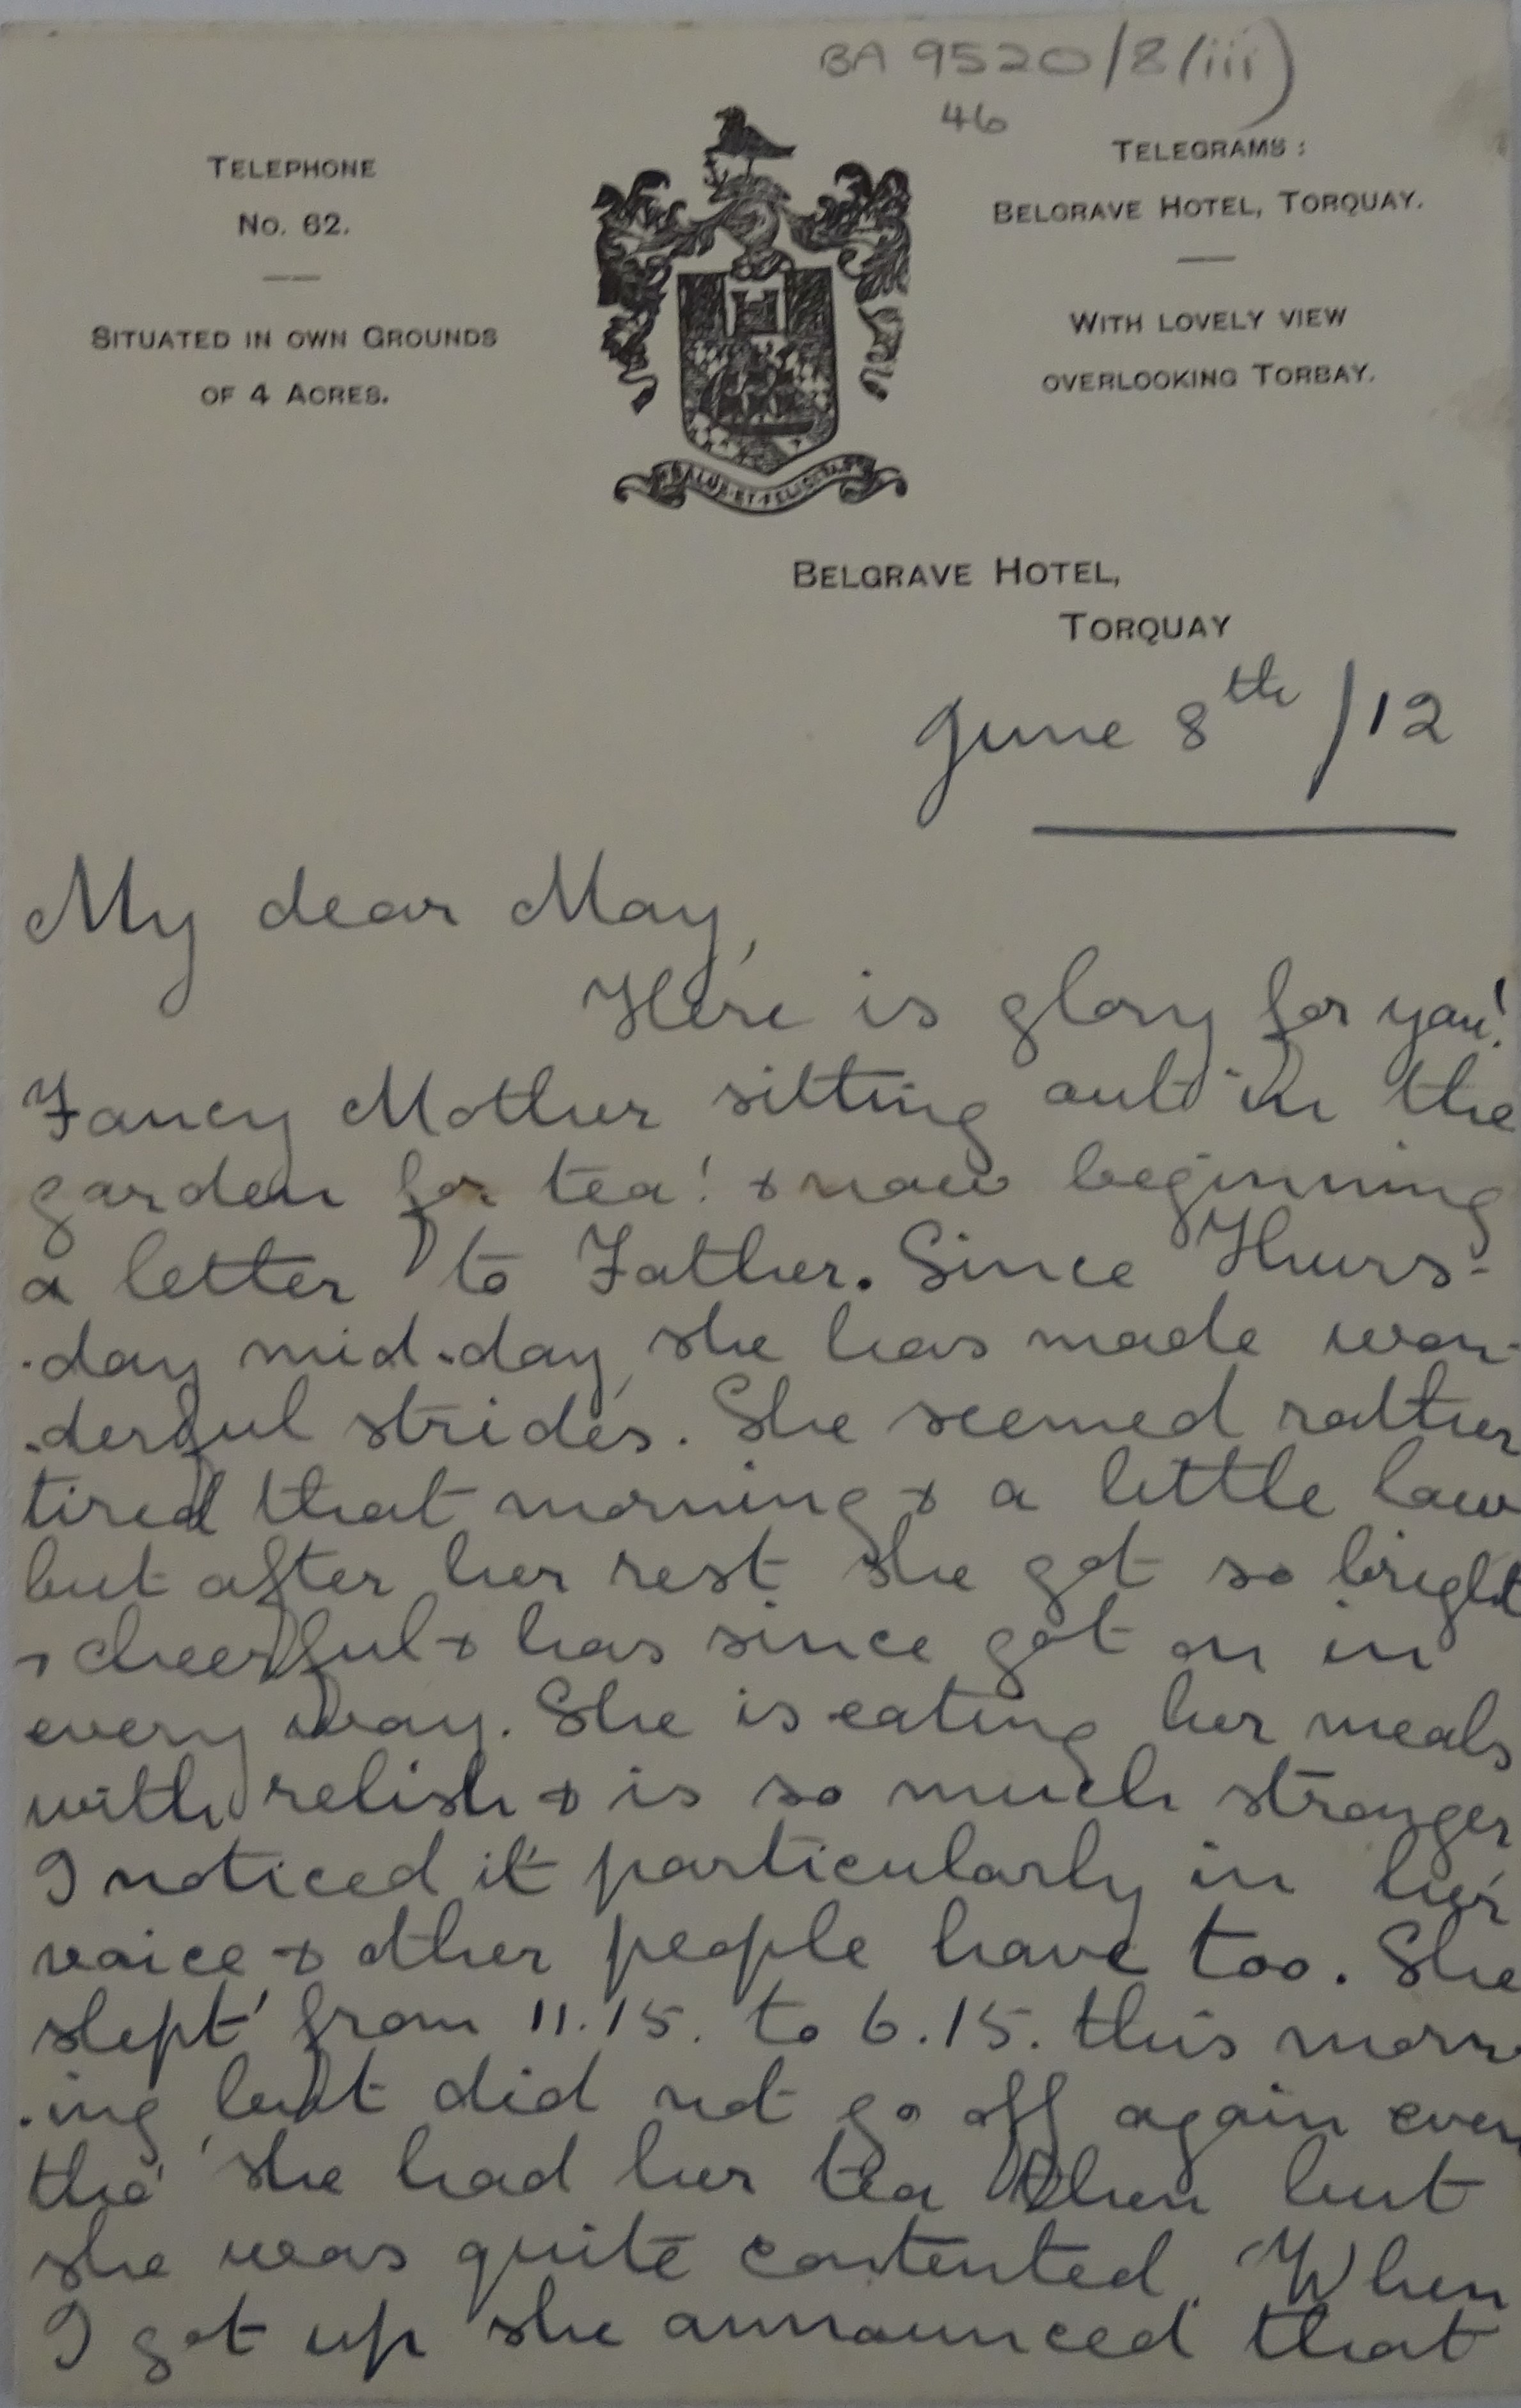 BA 9520/8(iii)
46
TELEPHONE
No. 62.
SITUATED IN OWN GROUNDS
OF 4 ACRES.
TELEGRAMS:
BELGRAVE HOTEL, TORQUAY.
WITH LOVELY VIEW
OVERLOOKING TORBAY.
SALUS·ET·FELICITAS
BELGRAVE HOTEL,
TORQUAY
June 8th/12
My dear May,
Here is glory for you!
Fancy Mother sitting out in the
garden for tea! & now beginning
a letter to Father. Since Thurs-
-day mid-day, she has made won-
-derful strides. She seemed rather
tired that morning & a little low
but after her rest she got so bright
& cheerful & has since got on in
every way. She is eating her meals
with relish & is so much stronger
I noticed it particularly in her
voice & other people have too. She
slept from 11.15. to 6.15. this morn
-ing, but did not go off again even
tho' she had her tea then but
she was quite contented. When
I got up she announced that